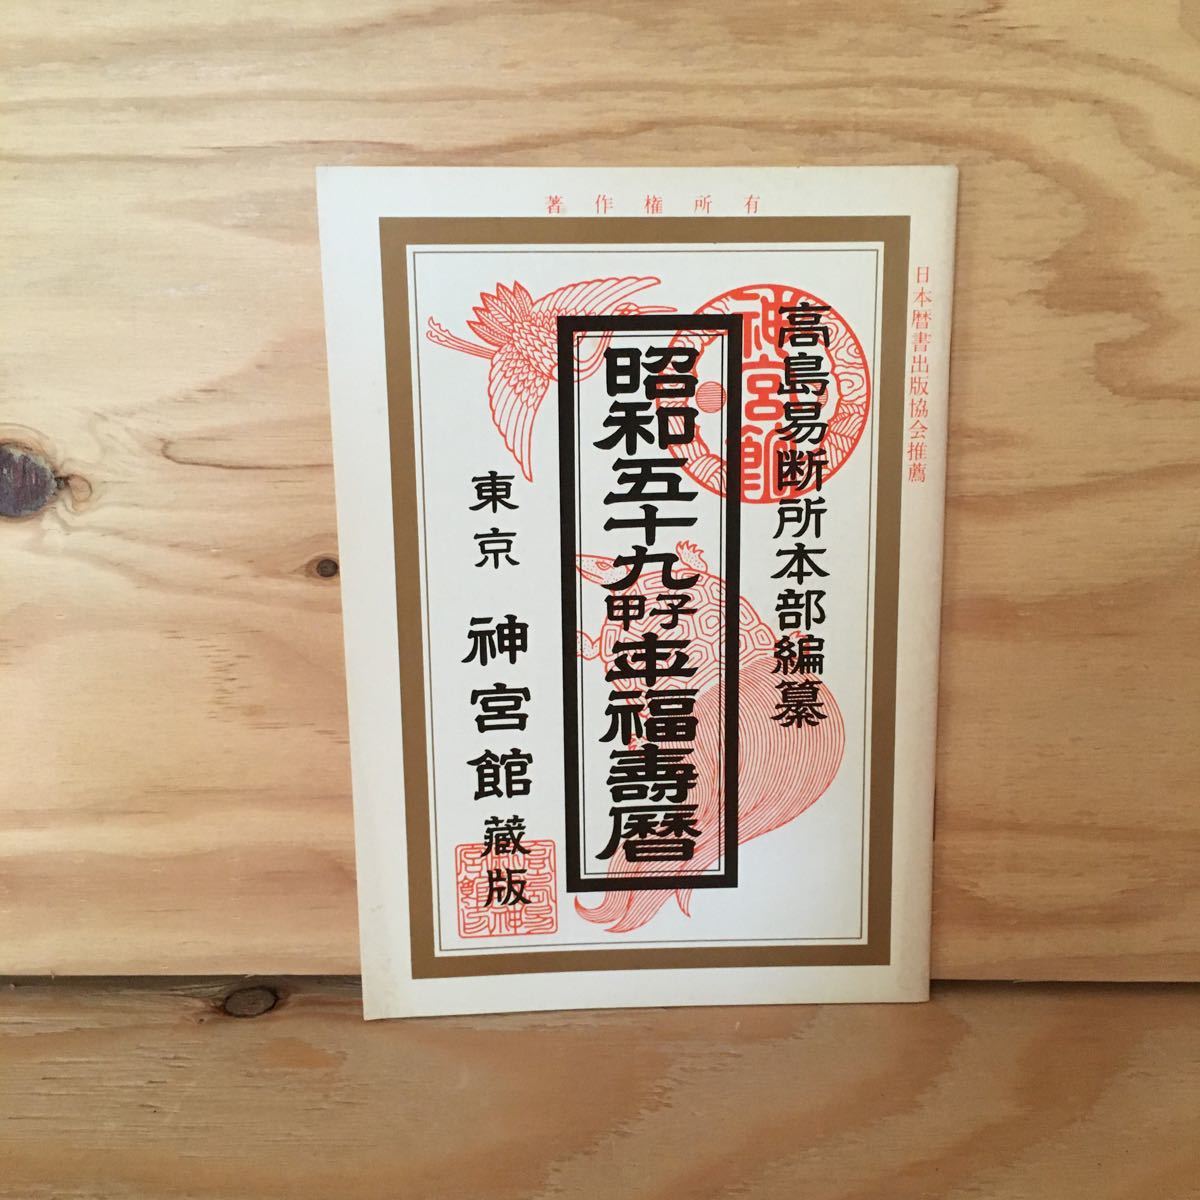 著作権所有
日本暦書出版協会推薦
神宮館
高島易断所本部編纂
昭和五十九甲子年福壽暦
東京 神宮館藏版